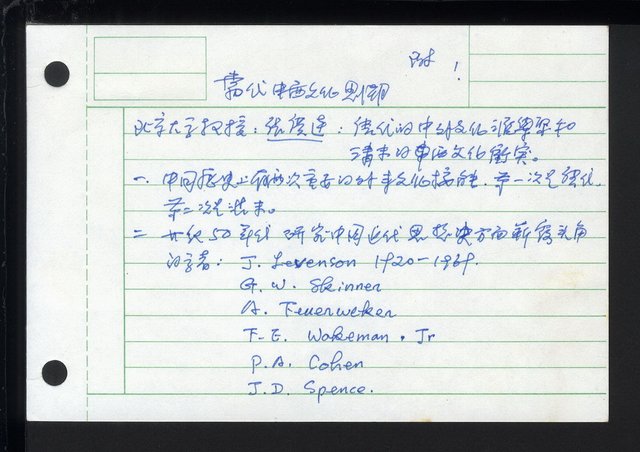 附 1
当代中西文化思潮
北京大学教授：张 ：唐代的中外文化 和
清末的中西文化衝突。
一、中国歷史上有两次重要的外来文化接触，第一次是唐代，
第二次是清末。
二 廿纪50年代 研究中国近代思想史方面嶄露头角
的学者： J. Levenson 1920-1969.
G. W. Skinner
A. Feuerweker
F. E. Wakeman, Jr
P. A. Cohen
J. D. Spence.